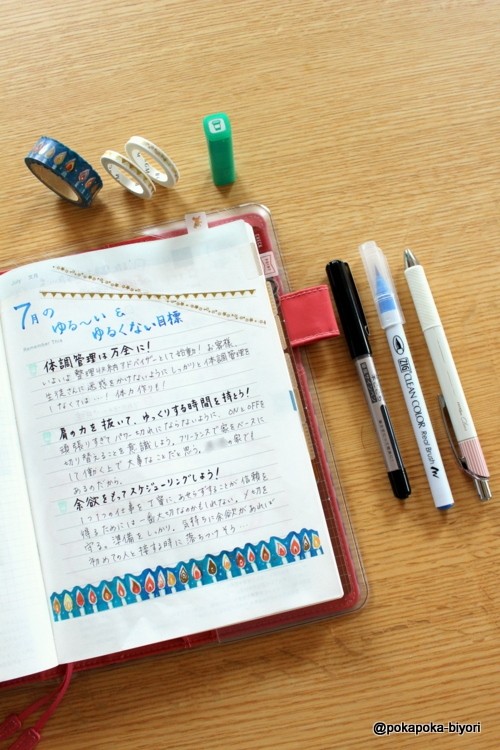 7月の
ゆる～い &
ゆるくない目標
Remember This
体調管理は万全に！
いよいよ 整理収納アドバイザーとして始動！お客様、
生徒さんに迷惑をかけないようにしっかりと体調管理を
しなくては…！体力作りも！
肩の力を抜いて、ゆっくりする時間を持とう！
頑張りすぎてパワー切れにならないように、ON と OFFを
切り替えることを意識しよう。フリーランスで家をベースに
して働く上で大事なことだと思う。 の家でも
あるのだから。
余欲をもってスケジューリングしよう！
1つ1つの仕事を丁寧に、あせらずすることが信頼を
得るためには一番大切なのかもしれない。〆切を
守る。準備をしっかり。気持ちに余欲があれば
初めての人と接する時に落ちつけそう…
ZIG CLEAN COLOR Real Brush
@pokapoka-biyori